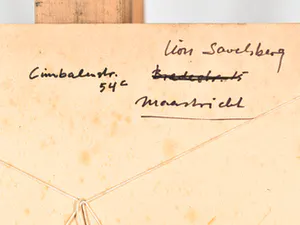 Lion Savelsberg
Cimbalenstr.
54c
Maastricht